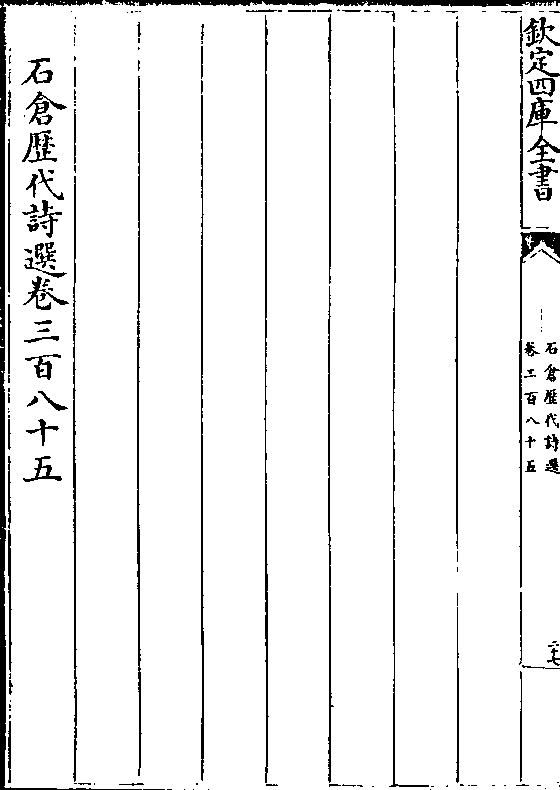 欽定四庫全書
石倉歷代詩選
卷三百八十五
二十七
石倉歷代詩選卷三百八十五